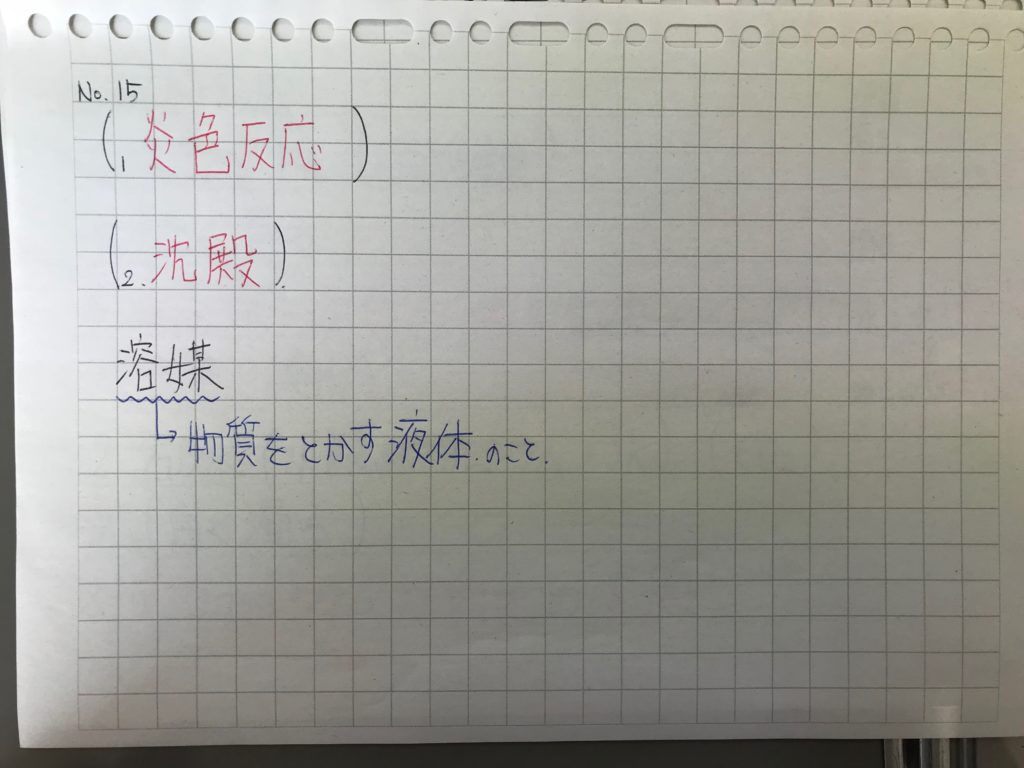 No. 15
(1. 炎色反応)
(2. 沈殿).
溶媒
→ 物質をとかす液体のこと.